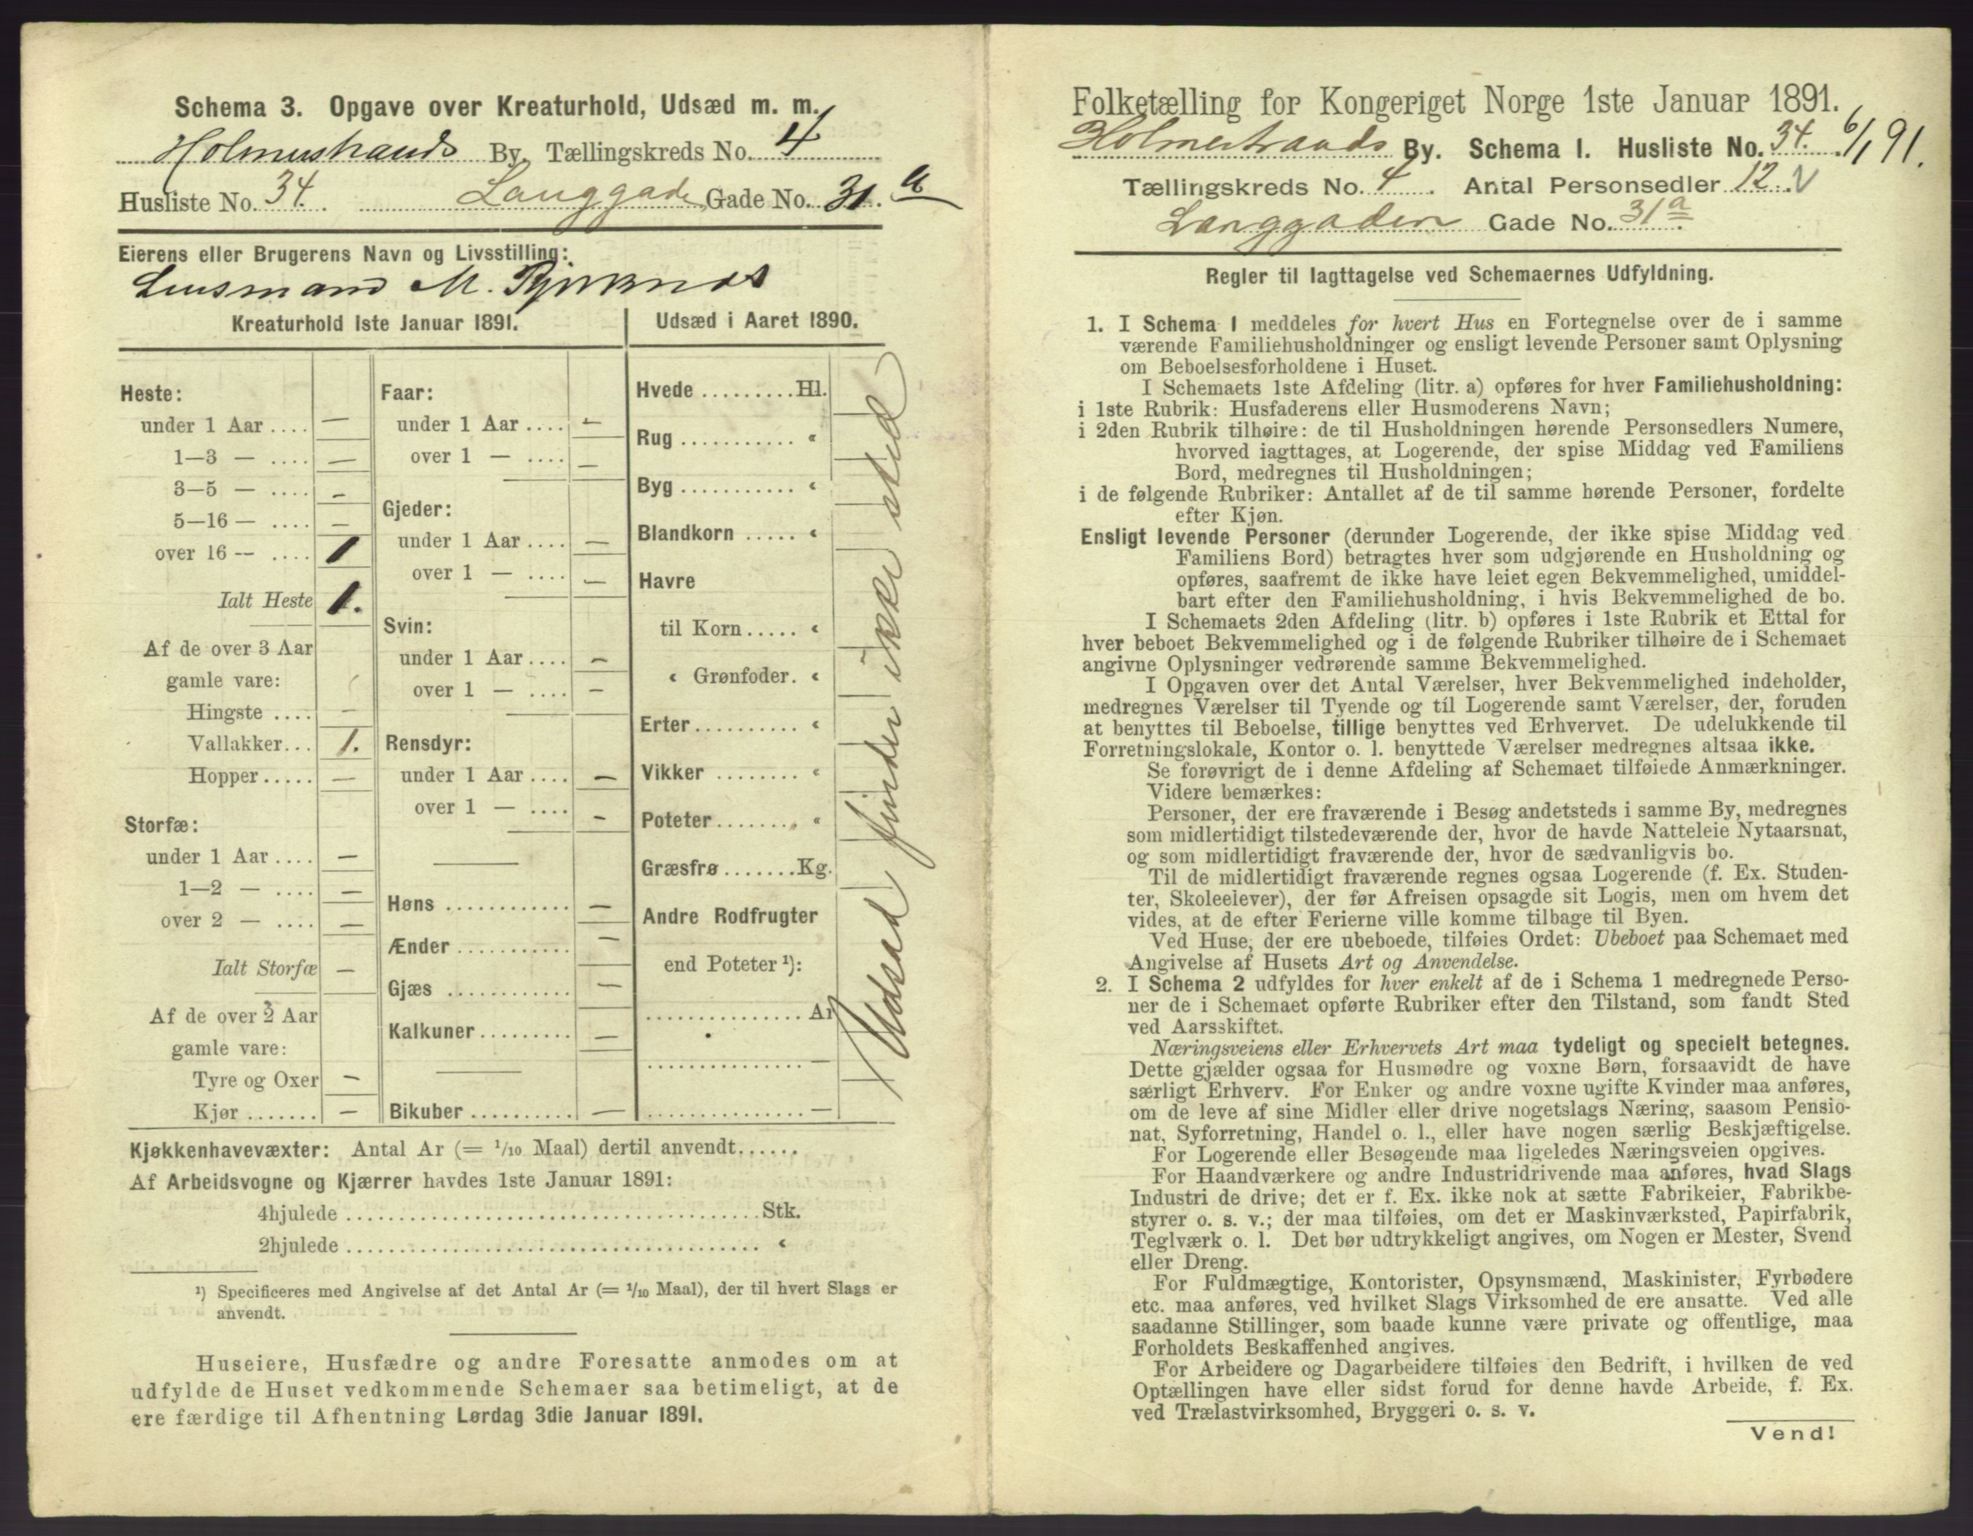 Schema 3. Opgave over Kreaturhold, Udsæd m. m.
Holmestrands By. Tællingskreds No. 4
Husliste No. 34. Langgade Gade No. 31. a
Eierens eller Brugerens Navn og Livsstilling:
Lensmand M.
Kreaturhold 1ste Januar 1891.
Heste:
under 1 Aar .... —
1—3 — .... —
3—5 — .... —
5—16 — .... —
over 16 — .... 1
Ialt Heste 1.
Af de over 3 Aar
gamle vare:
Hingste .... —
Vallakker... 1.
Hopper..... —
Storfæ:
under 1 Aar .... —
1—2 — .... —
over 2 — .... —
Ialt Storfæ —
Af de over 2 Aar
gamle vare:
Tyre og Oxer —
Kjør ....... —
Faar:
under 1 Aar .... —
over 1 — .... —
Gjeder:
under 1 Aar .... —
over 1 — .... —
Svin:
under 1 Aar .... —
over 1 — .... —
Rensdyr:
under 1 Aar .... —
over 1 — .... —
Høns ............ —
Ænder ........... —
Gjæs ............ —
Kalkuner......... —
Bikuber.......... —
Udsæd i Aaret 1890.
Hvede .........Hl.
Rug ........... “
Byg ........... “
Blandkorn ..... “
Havre
til Korn..... “
“ Grønfoder. “
Erter.......... “
Vikker ........ “
Poteter........ “
Græsfrø.......Kg.
Andre Rodfrugter
end Poteter ¹):
................ Ar
................ —
................ —
Udsæd finder ikke sted
Kjøkkenhavevæxter: Antal Ar (= 1/10 Maal) dertil anvendt......
Af Arbeidsvogne og Kjærrer havdes 1ste Januar 1891:
4hjulede ......................................Stk.
2hjulede ...................................... “
¹) Specificeres med Angivelse af det Antal Ar (= 1/10 Maal), der til hvert Slags er
anvendt.
Huseiere, Husfædre og andre Foresatte anmodes om at
udfylde de Huset vedkommende Schemaer saa betimeligt, at de
ere færdige til Afhentning Lørdag 3die Januar 1891.
Folketælling for Kongeriget Norge 1ste Januar 1891.
Holmestrands By. Schema 1. Husliste No. 34. 6/1 91.
Tællingskreds No. 4. Antal Personsedler 12. V
Langgaden Gade No. 31a
Regler til Iagttagelse ved Schemaernes Udfyldning.
1. I Schema 1 meddeles for hvert Hus en Fortegnelse over de i samme
værende Familiehusholdninger og ensligt levende Personer samt Oplysning
om Beboelsesforholdene i Huset.
I Schemaets 1ste Afdeling (litr. a) opføres for hver Familiehusholdning:
i 1ste Rubrik: Husfaderens eller Husmoderens Navn;
i 2den Rubrik tilhøire: de til Husholdningen hørende Personsedlers Numere,
hvorved iagttages, at Logerende, der spise Middag ved Familiens
Bord, medregnes til Husholdningen;
i de følgende Rubriker: Antallet af de til samme hørende Personer, fordelte
efter Kjøn.
Ensligt levende Personer (derunder Logerende, der ikke spise Middag ved
Familiens Bord) betragtes hver som udgjørende en Husholdning og
opføres, saafremt de ikke have leiet egen Bekvemmelighed, umiddel-
bart efter den Familiehusholdning, i hvis Bekvemmelighed de bo.
I Schemaets 2den Afdeling (litr. b) opføres i 1ste Rubrik et Ettal for
hver beboet Bekvemmelighed og i de følgende Rubriker tilhøire de i Schemaet
angivne Oplysninger vedrørende samme Bekvemmelighed.
I Opgaven over det Antal Værelser, hver Bekvemmelighed indeholder,
medregnes Værelser til Tyende og til Logerende samt Værelser, der, foruden
at benyttes til Beboelse, tillige benyttes ved Erhvervet. De udelukkende til
Forretningslokale, Kontor o. l. benyttede Værelser medregnes altsaa ikke.
Se forøvrigt de i denne Afdeling af Schemaet tilføiede Anmærkninger.
Videre bemærkes:
Personer, der ere fraværende i Besøg andetsteds i samme By, medregnes
som midlertidigt tilstedeværende der, hvor de havde Natteleie Nytaarsnat,
og som midlertidigt fraværende der, hvor de sædvanligvis bo.
Til de midlertidigt fraværende regnes ogsaa Logerende (f. Ex. Studen-
ter, Skoleelever), der før Afreisen opsagde sit Logis, men om hvem det
vides, at de efter Ferierne ville komme tilbage til Byen.
Ved Huse, der ere ubeboede, tilføies Ordet: Ubeboet paa Schemaet med
Angivelse af Husets Art og Anvendelse.
2. I Schema 2 udfyldes for hver enkelt af de i Schema 1 medregnede Perso-
ner de i Schemaet opførte Rubriker efter den Tilstand, som fandt Sted
ved Aarsskiftet.
Næringsveiens eller Erhvervets Art maa tydeligt og specielt betegnes.
Dette gjælder ogsaa for Husmødre og voxne Børn, forsaavidt de have
særligt Erhverv. For Enker og andre voxne ugifte Kvinder maa anføres,
om de leve af sine Midler eller drive nogetslags Næring, saasom Pensio-
nat, Syforretning, Handel o. l., eller have nogen særlig Beskjæftigelse.
For Logerende eller Besøgende maa ligeledes Næringsveien opgives.
For Haandværkere og andre Industridrivende maa anføres, hvad Slags
Industri de drive; det er f. Ex. ikke nok at sætte Fabrikeier, Fabrikbe-
styrer o. s. v.; der maa tilføies, om det er Maskinværksted, Papirfabrik,
Teglværk o. l. Det bør udtrykkeligt angives, om Nogen er Mester, Svend
eller Dreng.
For Fuldmægtige, Kontorister, Opsynsmænd, Maskinister, Fyrbødere
etc. maa anføres, ved hvilket Slags Virksomhed de ere ansatte. Ved alle
saadanne Stillinger, som baade kunne være private og offentlige, maa
Forholdets Beskaffenhed angives.
For Arbeidere og Dagarbeidere tilføies den Bedrift, i hvilken de ved
Optællingen have eller sidst forud for denne havde Arbeide, f. Ex.
ved Trælastvirksomhed, Bryggeri o. s. v.
Vend!